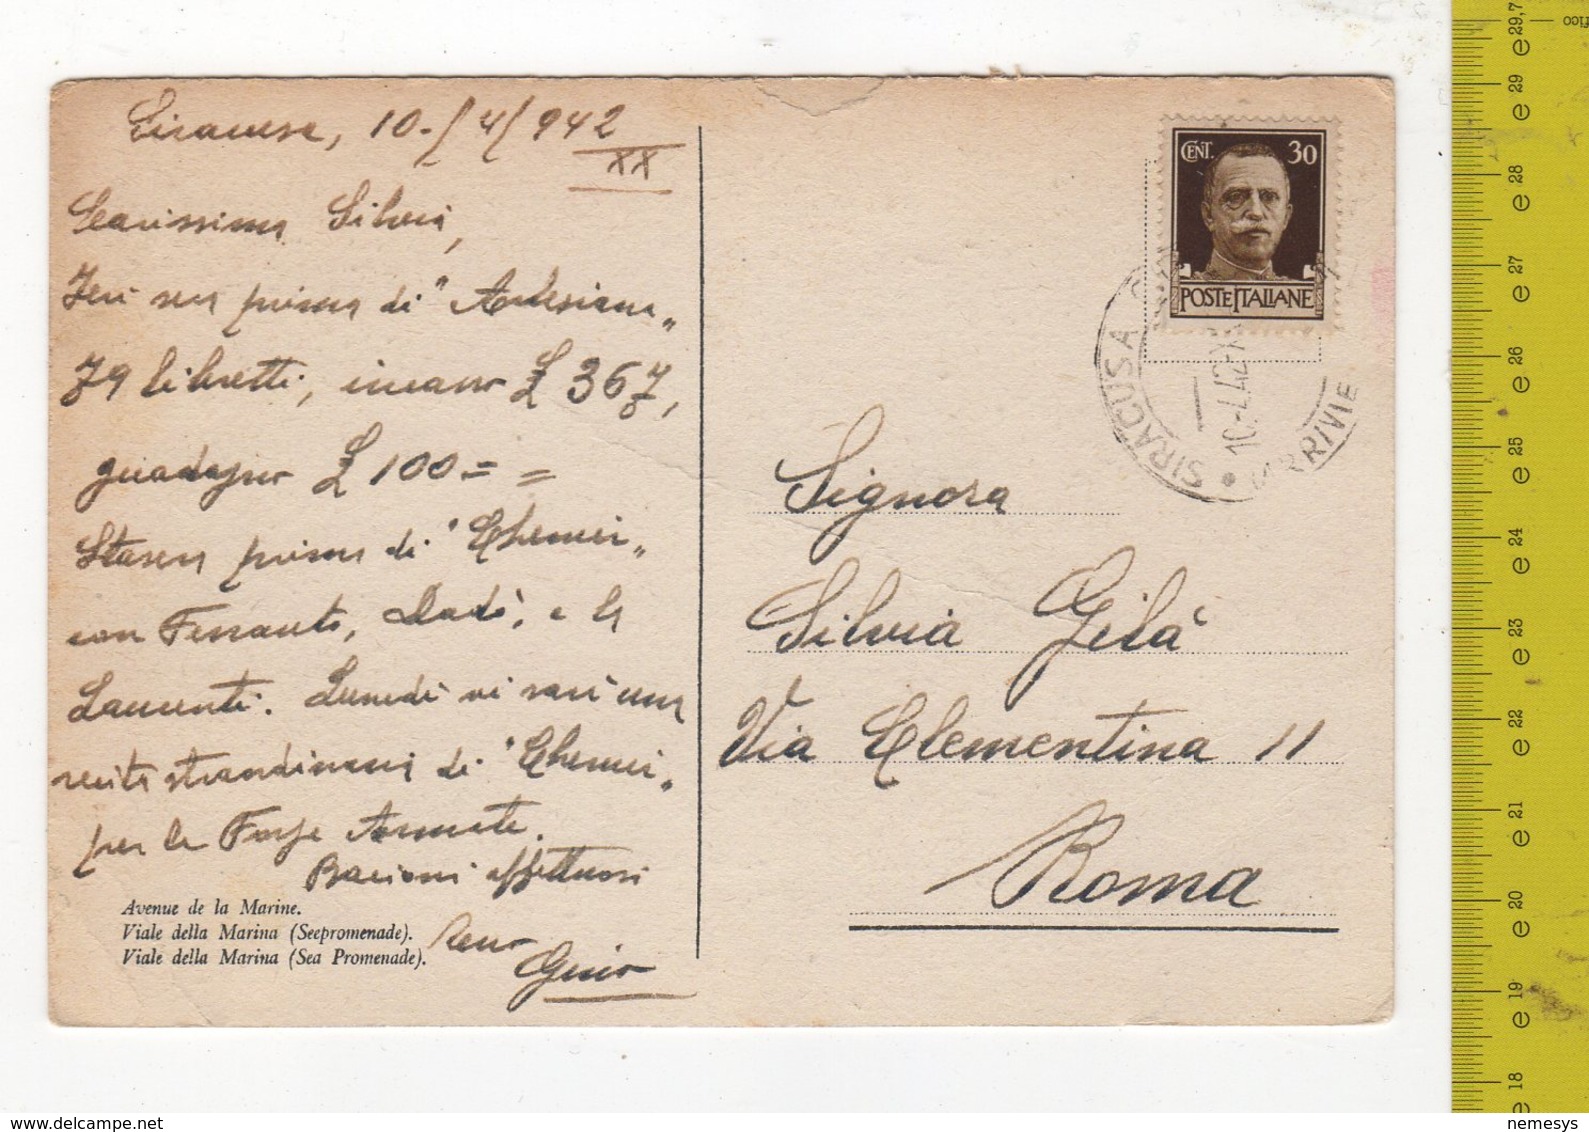 Siracusa, 10-/4/942
XX
Carissima Silvia,
Ieri sera prima di "Artesiana"
79 libretti, incasso £ 367,
guadagno £ 100= =
Stasera prima di "Chenier"
con Ferrauto, Dadò, e la
Laurenti. Lunedì vi sarà una
recita straordinaria di "Chenier"
per le Forze Armate.
Bacioni affettuosi
Avenue de la Marine.
Viale della Marina (Seepromenade).
Viale della Marina (Sea Promenade).
CENT. 30
POSTE ITALIANE
SIRACUSA
10-4.42-X
ARRIVI E
Signora
Silvia Gilà
Via Clementina 11
Roma
e 29,7
e 29
e 28
e 27
e 26
e 25
e 24
e 23
e 22
e 21
e 20
e 19
e 18
nemesys